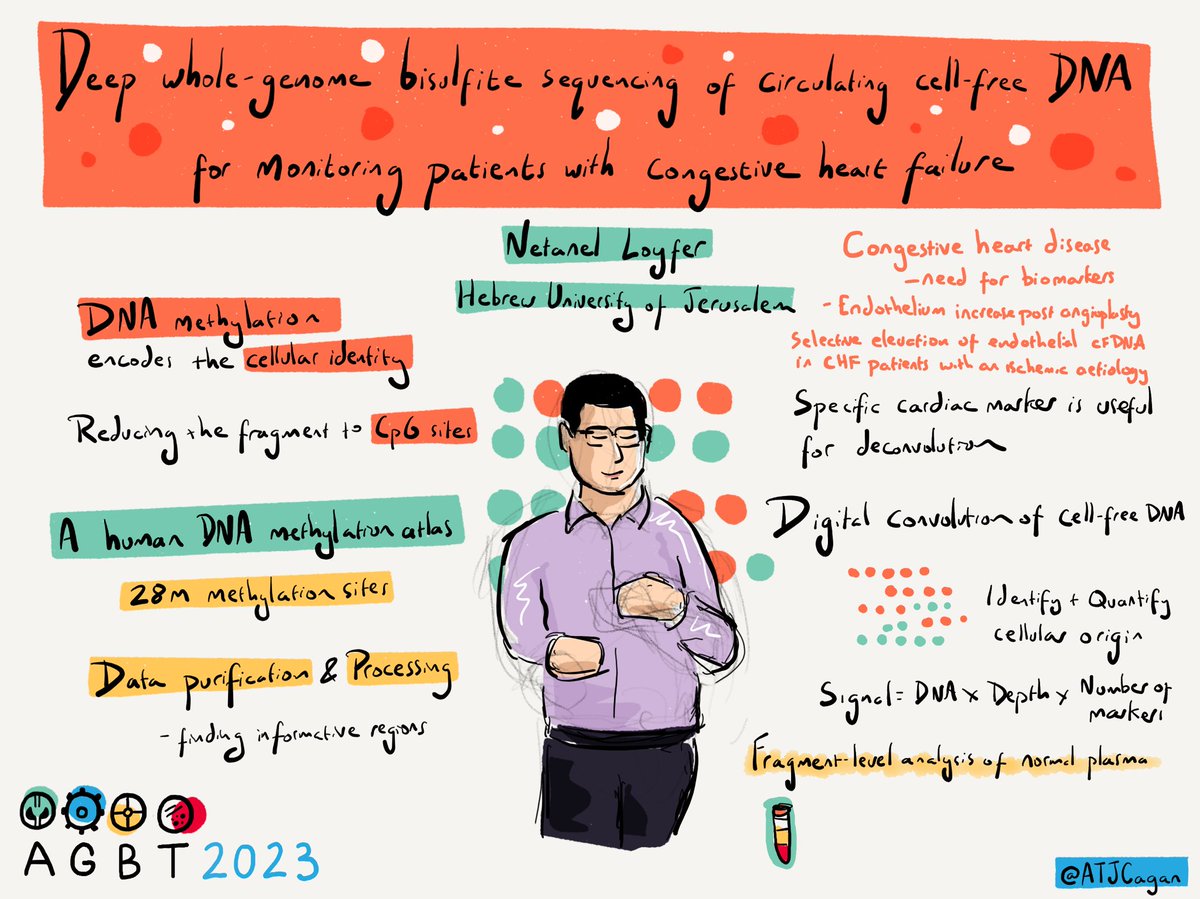 Deep whole-genome bisulfite sequencing of circulating cell-free DNA
for monitoring patients with congestive heart failure
Netanel Loyfer
Hebrew University of Jerusalem
DNA methylation
encodes the cellular identity
Reducing the fragment to CpG sites
A human DNA methylation atlas
28m methylation sites
Data purification & Processing
- finding informative regions
Congestive heart disease
- need for biomarkers
- Endothelium increase post angioplasty
Selective elevation of endothelial cfDNA
in CHF patients with an ischemic aetiology
Specific cardiac marker is useful
for deconvolution
Digital Convolution of cell-free DNA
Identify + Quantify
cellular origin
Signal = DNA x Depth x Number of
markers
Fragment-level analysis of normal plasma
AGBT 2023
@ATJCagan